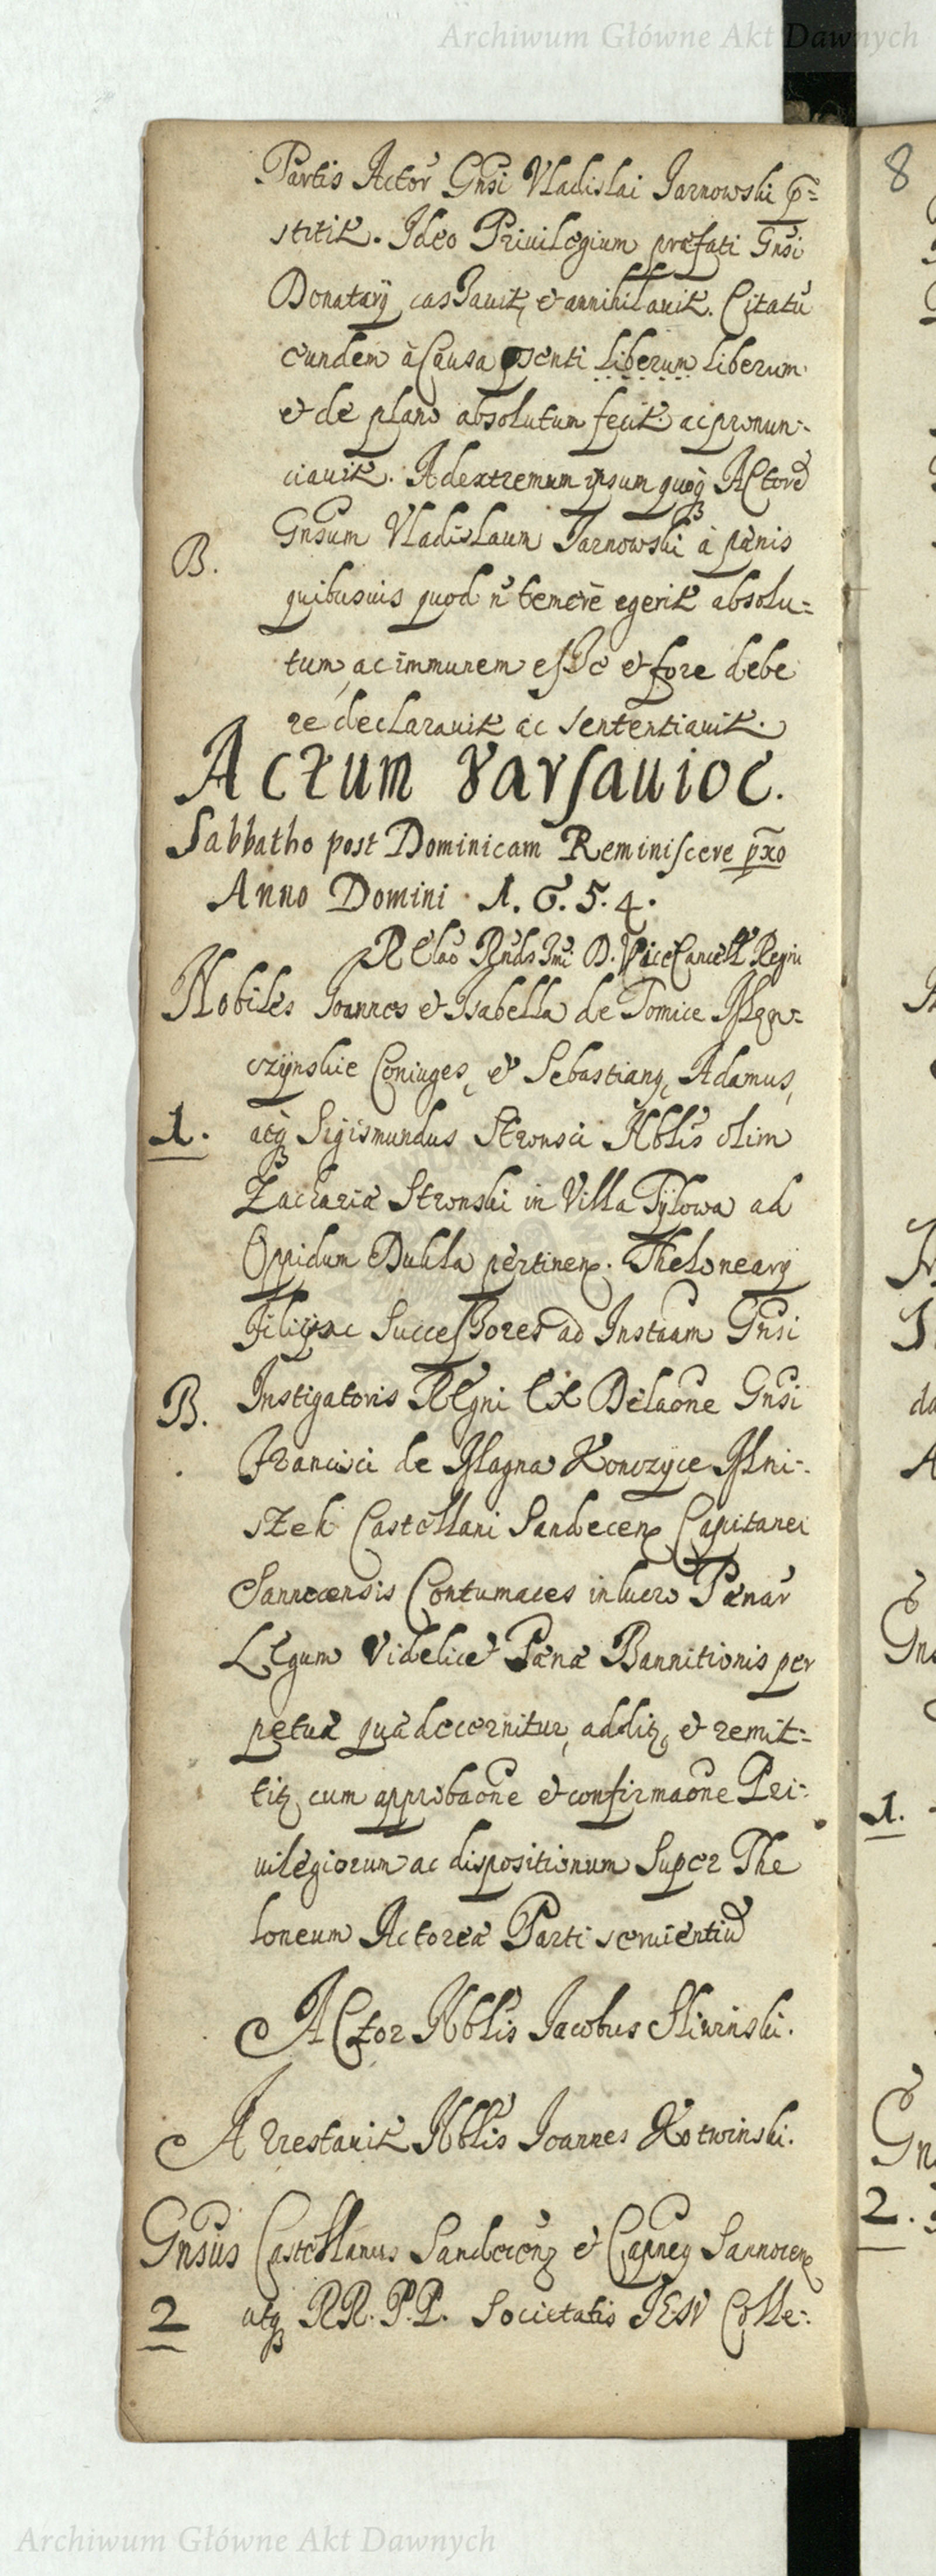 Archiwum Główne Akt Dawnych
Partis Actor Gnsi Vladislai Jarnowski p=
stitit. Ideo Priuilegium præfati Gnsi
Donatarij cassauit, et annihilauit. Citatu
eundem à Causa psenti liberum liberum
et de plano absolutum fecit ac pronun-
ciauit. Ad extremum ipsum quoq Actore
Gnsum Vladislaum Jarnowski à pænis
B.
quibusuis quod n temere egerit absolu=
tum, ac immunem esse et fore debe
re declarauit ac sententiauit.
Actum Varsauiæ.
Sabbatho post Dominicam Reminiscere pxo
Anno Domini 1.6.5.4.
Relao Rndi D. ViceCancell Regni
Nobiles Joannes et Isabella de Tomice
czÿnskie Coniuges, et Sebastianq, Adamus,
1. atq Sigismundus Stronsci Nblis olim
Zachariæ Stronski in Villa Tylowa ad
Oppidum Dukla pertinen. Thelonearij
Filij ac Successores ad Instaam Gnsi
B. Instigatoris Regni Ex Delaone Gnsi
Francisci de Magna Konczyce Mni-
szek Castellani Sandecen Capitanei
Sannocensis Contumaces in lucro Pænar
Legum Videlicet Pænæ Bannitionis per
petuæ quæ decernitur, additq, et remit=
titq cum approbaone et confirmaone Pri-
uilegiorum ac dispositionum Super The
loneum Actoreæ Parti seruientiu
Actor Nblis Jacobus Sliwinski.
Arrestauit Nblis Joannes Kotwinski.
Gnsus Castellanus Sandecen et Capneq Sannocen
2 atq RR. P.P. Societatis JESV Colle-
8
1.
2.
Archiwum Główne Akt Dawnych